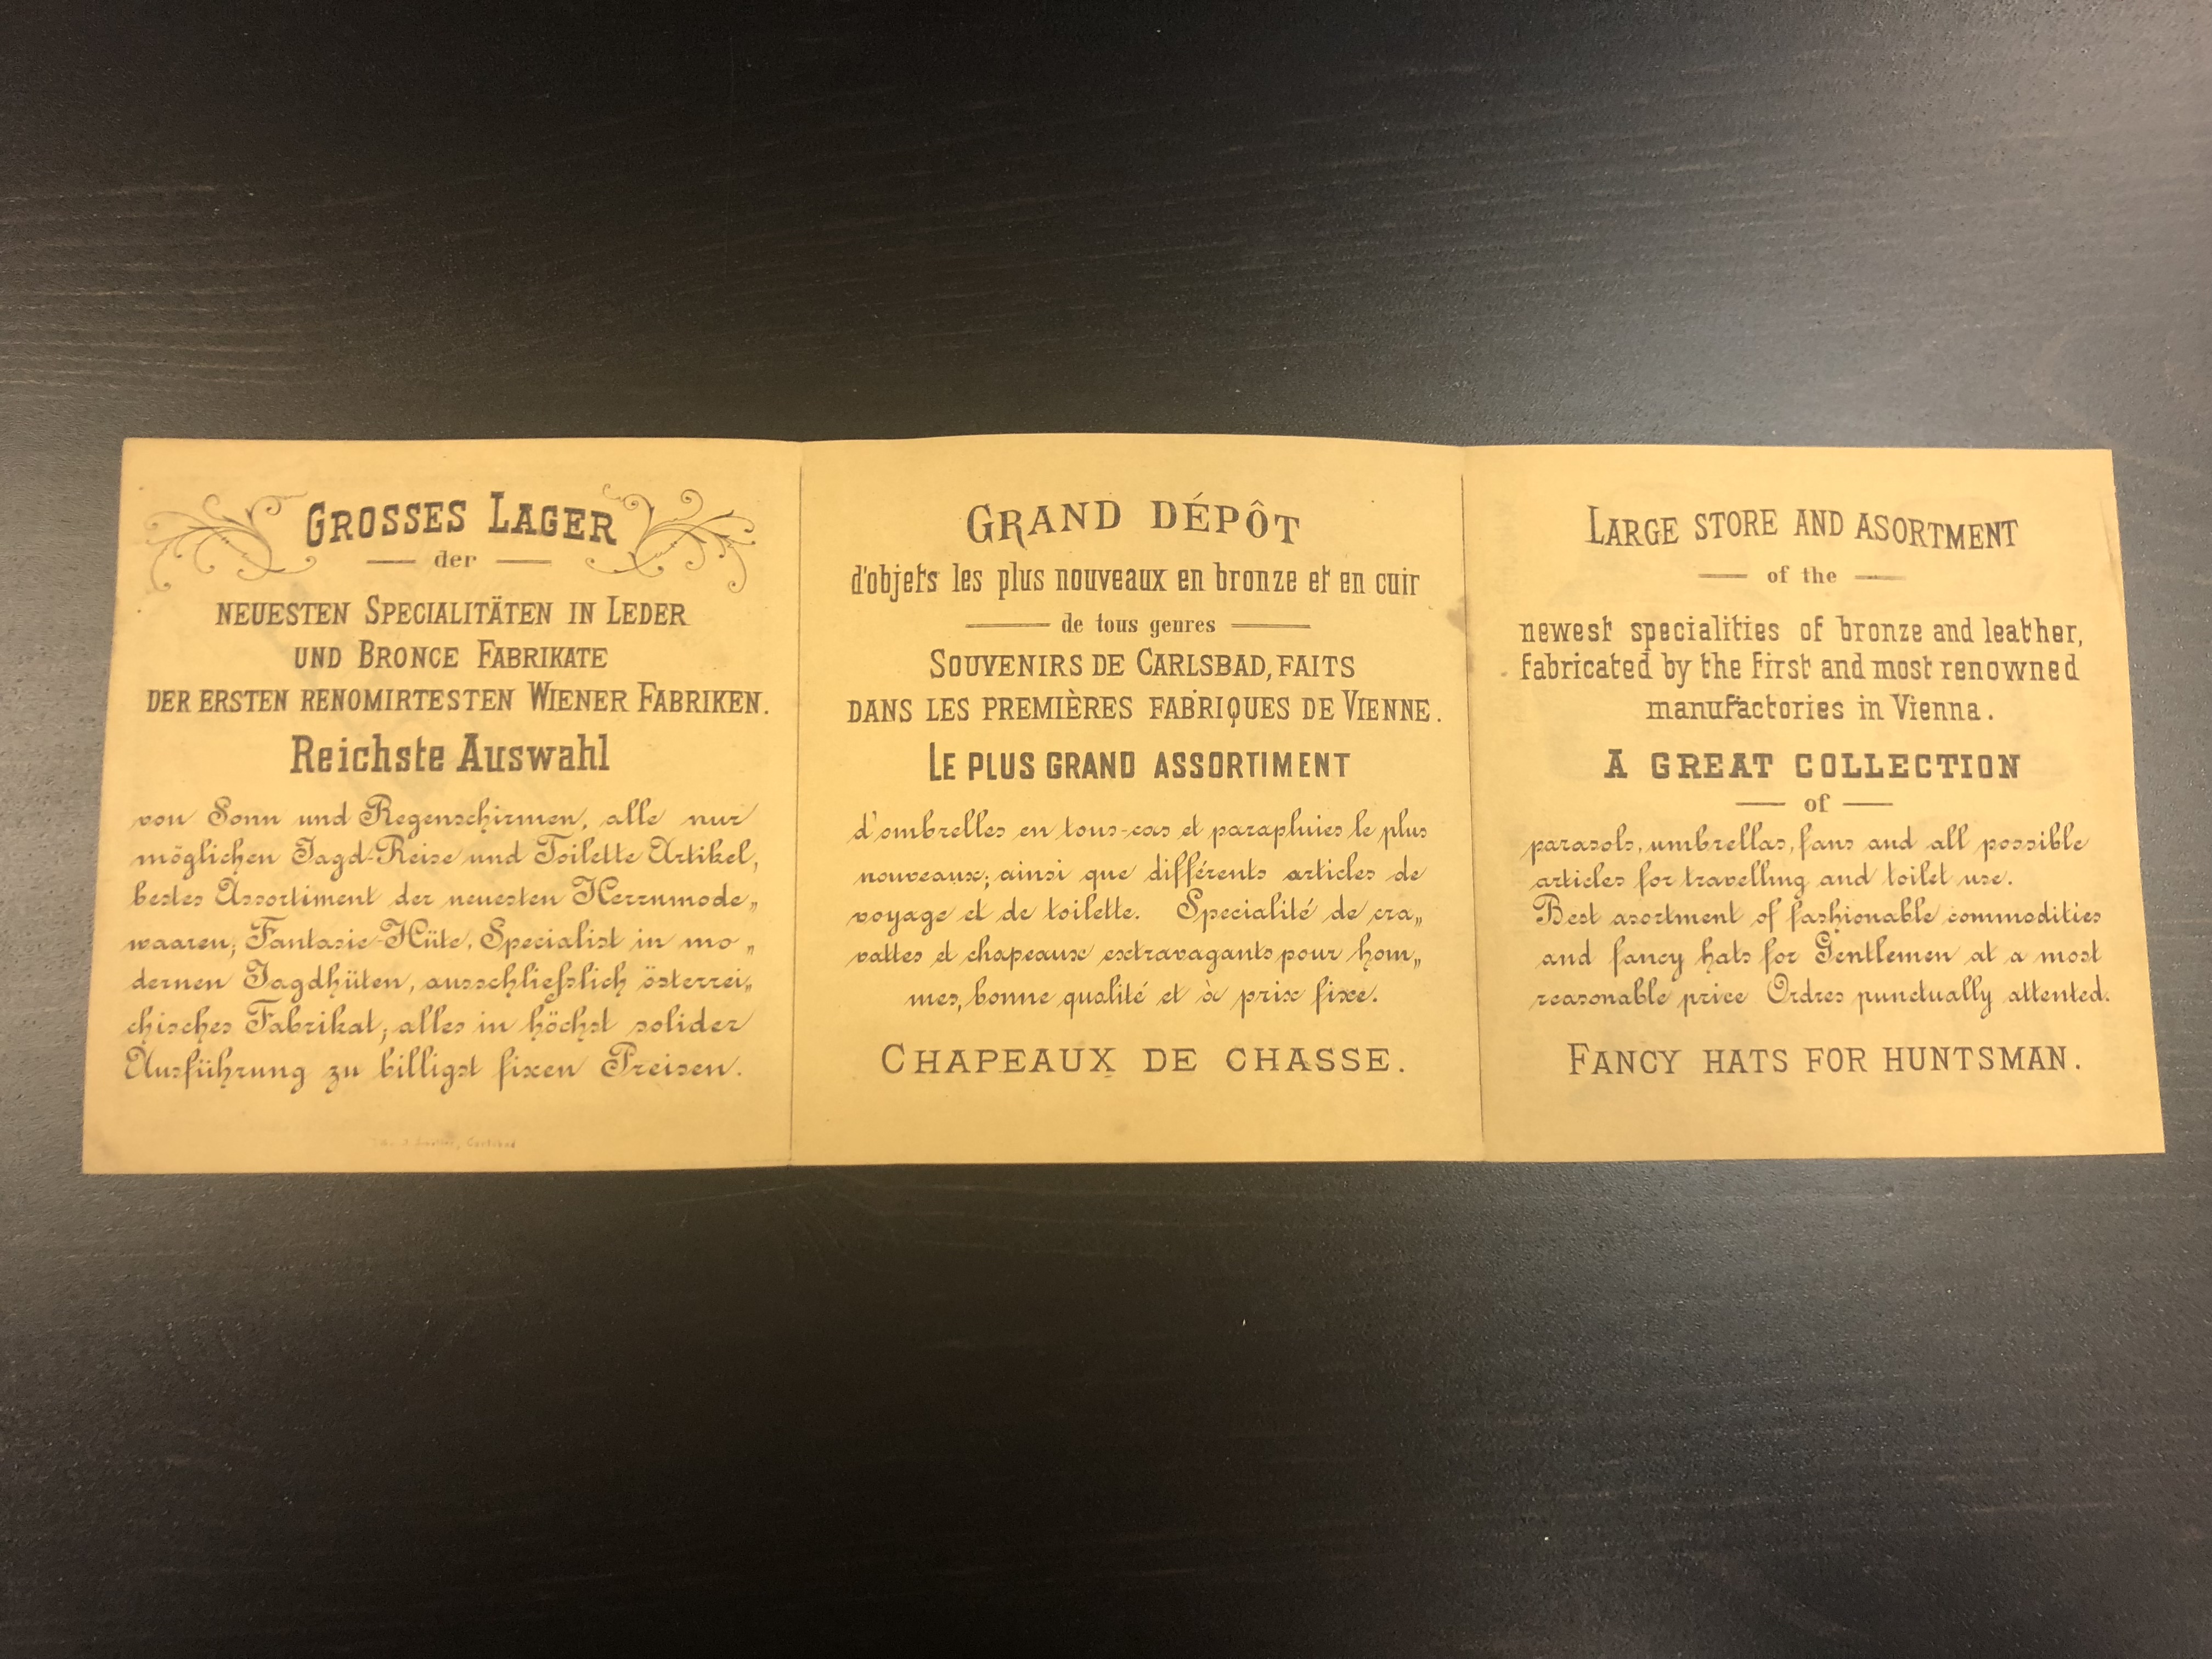 GROSSES LAGER
der
NEUESTEN SPECIALITÄTEN IN LEDER
UND BRONCE FABRIKATE
DER ERSTEN RENOMIRTESTEN WIENER FABRIKEN.
Reichste Auswahl
von Sonn und Regenschirmen, alle nur
möglichen Jagd-Reise und Toilette Artikel,
bestes Assortiment der neuesten Herrnmode„
waaren, Fantasie-Hüte, Specialist in mo„
dernen Jagdhüten, ausschließlich österrei„
chisches Fabrikat, alles in höchst solider
Ausführung zu billigst fixen Preisen.
Carlsbad
GRAND DÉPÔT
d'objets les plus nouveaux en bronze et en cuir
de tous genres
SOUVENIRS DE CARLSBAD, FAITS
DANS LES PREMIÈRES FABRIQUES DE VIENNE.
LE PLUS GRAND ASSORTIMENT
d'ombrelles en tous-cas et parapluies le plus
nouveaux; ainsi que différents articles de
voyage et de toilette. Specialité de cra„
vattes et chapeaux extravagants pour hom„
mes, bonne qualité et à prix fixe.
CHAPEAUX DE CHASSE.
LARGE STORE AND ASORTMENT
of the
newest specialities of bronze and leather,
fabricated by the first and most renowned
manufactories in Vienna.
A GREAT COLLECTION
of
parasols, umbrellas, fans and all possible
articles for travelling and toilet use.
Best asortment of fashionable commodities
and fancy hats for Gentlemen at a most
reasonable price Ordres punctually attented.
FANCY HATS FOR HUNTSMAN.